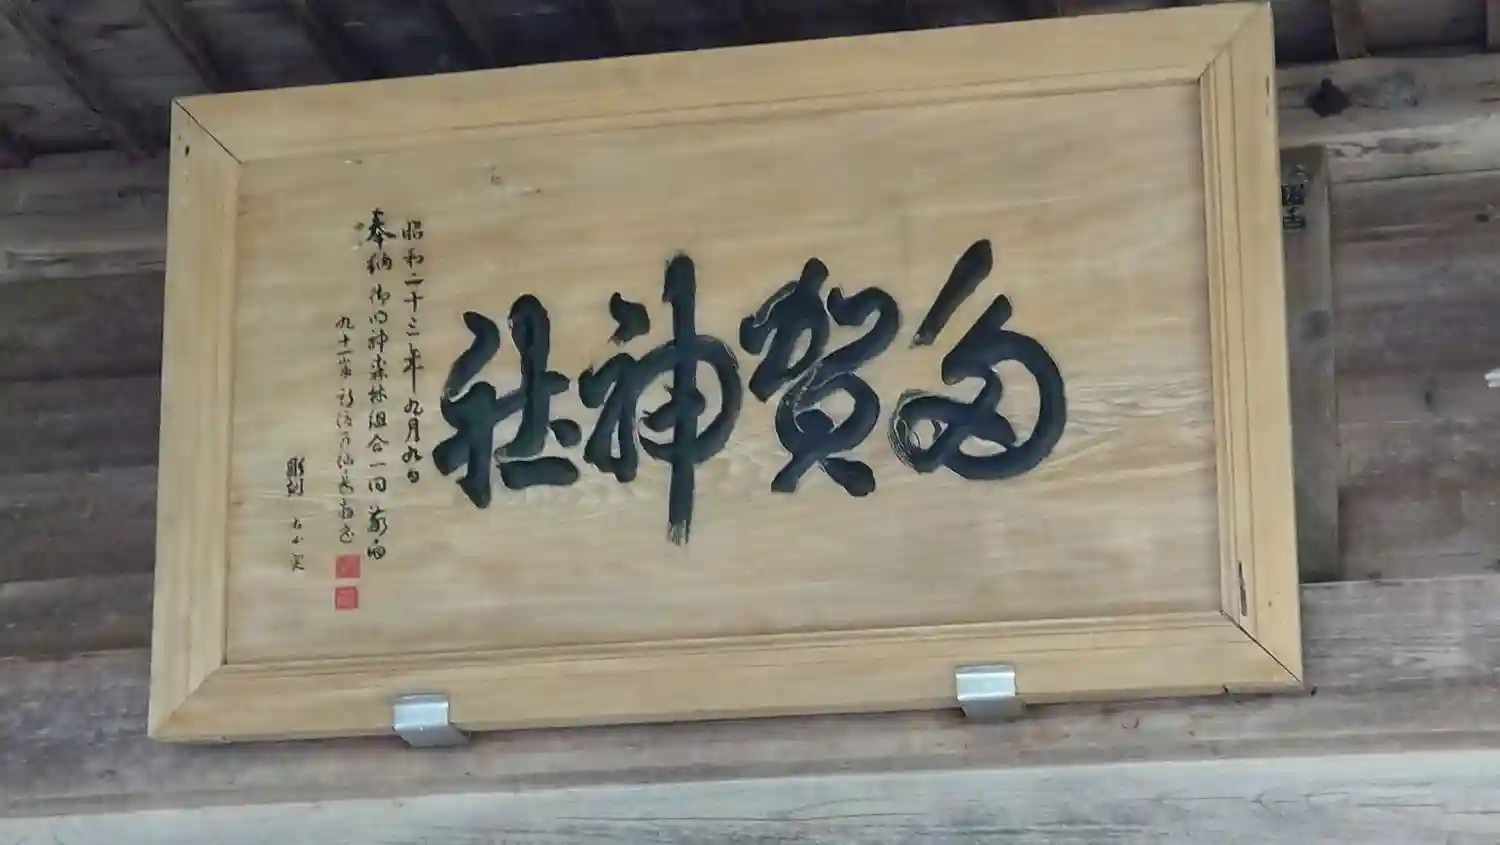 多賀神社
昭和二十三年九月九日
奉納 御明神森林組合一同 敬白
九十一歳
彫刻